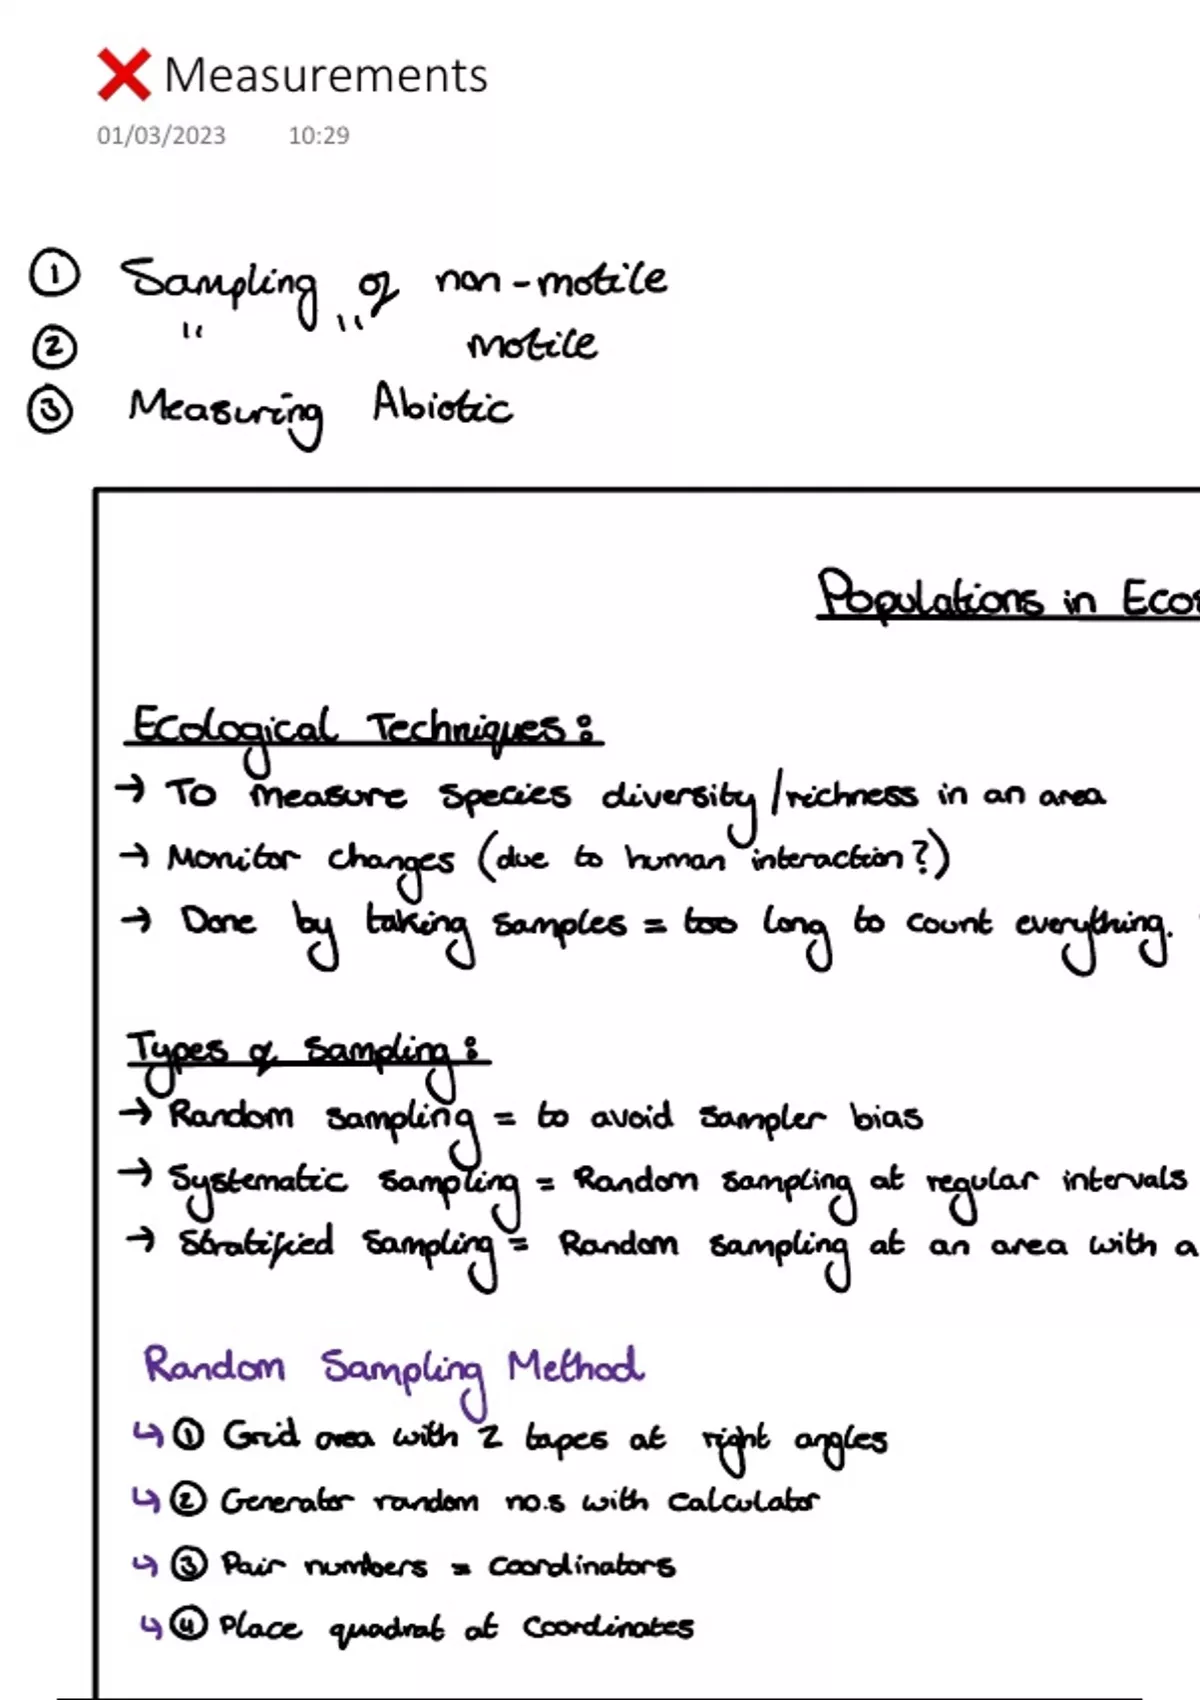 ❌ Measurements
01/03/2023 10:29
① Sampling of non-motile
② " " motile
③ Measuring Abiotic
Populations in Ecos
Ecological Techniques:
→ To measure species diversity/richness in an area
→ Monitor changes (due to human interaction?)
→ Done by taking samples = too long to count everything.
Types of Sampling:
→ Random sampling = to avoid sampler bias
→ Systematic sampling = Random sampling at regular intervals
→ Stratified sampling = Random sampling at an area with a
Random Sampling Method
↳ ① Grid area with 2 tapes at right angles
↳ ② Generator random no.s with calculator
↳ ③ Pair numbers = coordinators
↳ ④ Place quadrat at coordinates